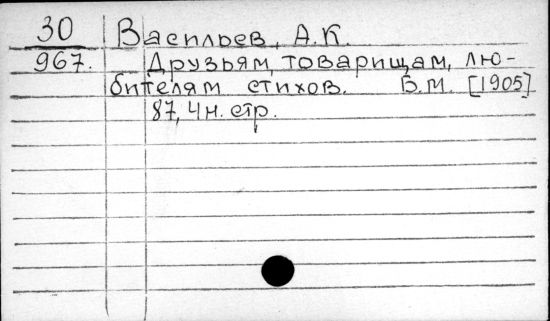 30 Васильев, А.К.
967. Друзьям, товарищам, лю-
бителям стихов. Б.м. [1905]
87, 4 н. стр.